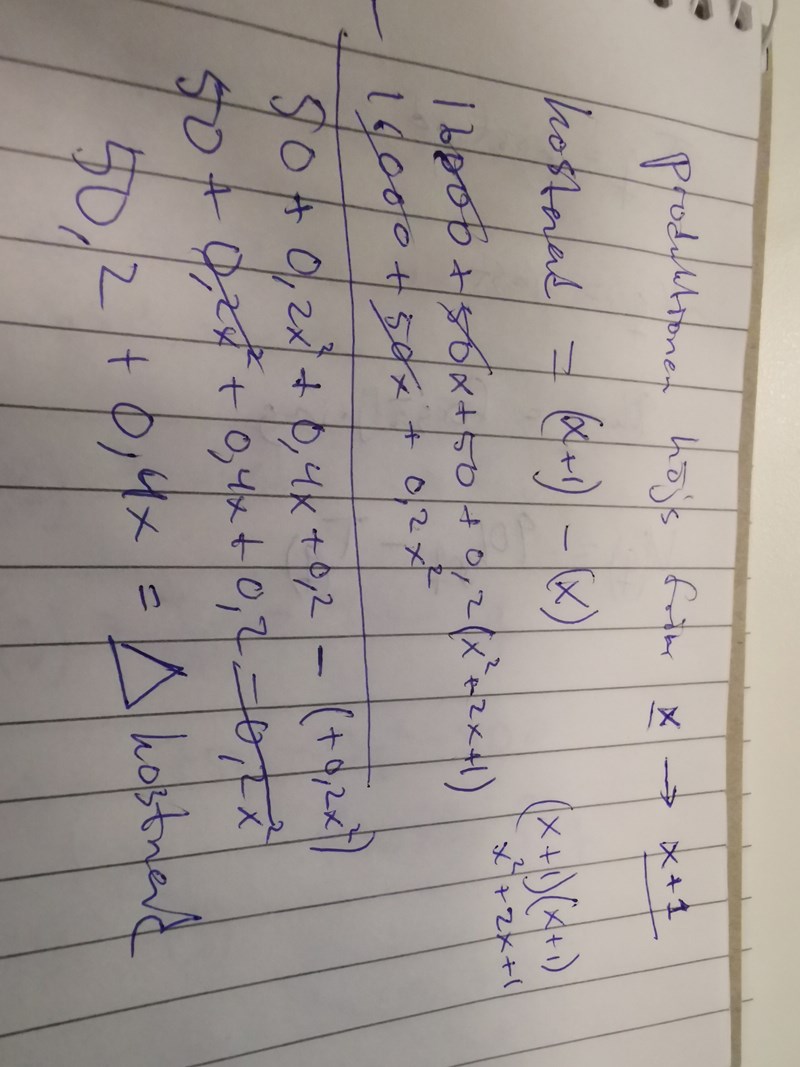 Produktionen höjs från x → x+1
kostnad = (x+1) - (x)
(x+1)(x+1)
x² + 2x + 1
12000 + 50x + 50 + 0,2(x² + 2x + 1)
- 12000 + 50x + 0,2x²
50 + 0,2x² + 0,4x + 0,2 - (+0,2x²)
50 + 0,2x² + 0,4x + 0,2 - 0,2x²
50,2 + 0,4x = △ kostnad